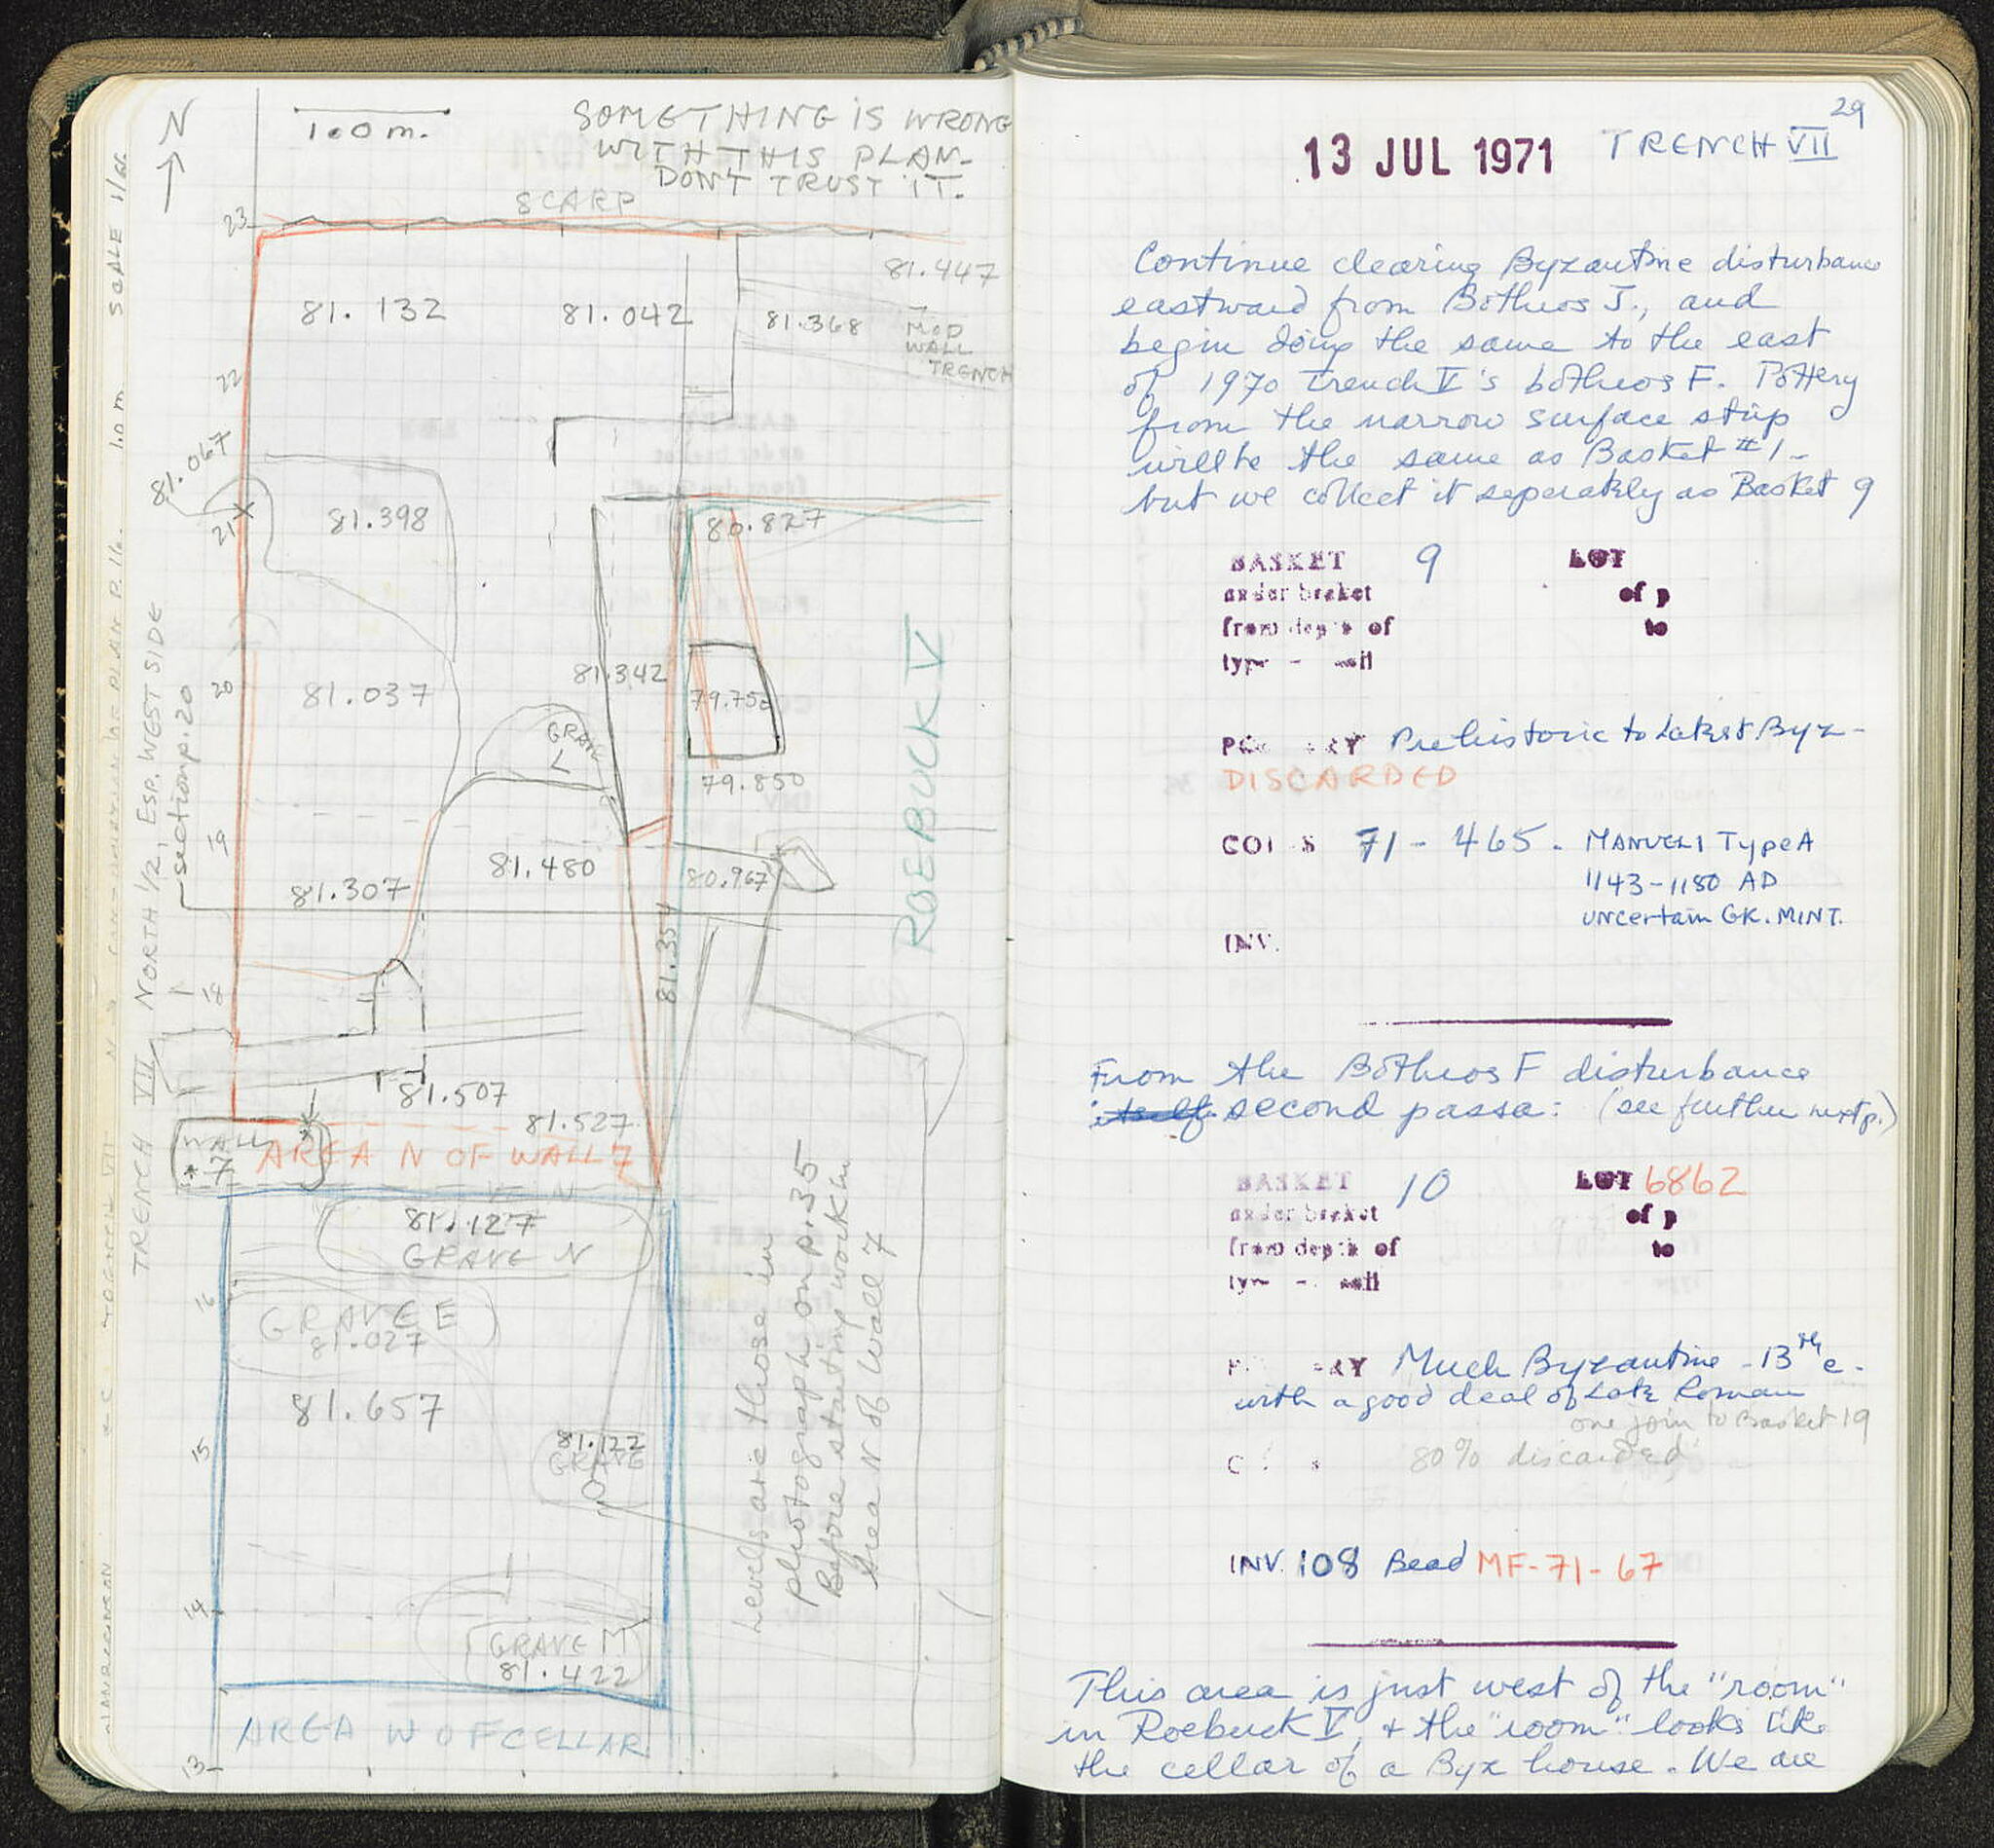 N
1.0 m.
SOMETHING IS WRONG
WITH THIS PLAN-
DON'T TRUST IT.
SCARP
23
81.447
81.132
81.042
81.368
MOD
WALL
TRENCH
22
81.067
21
81.398
80.827
81.342
20
81.037
79.75
GRAVE
L
79.850
19
81.480
80.967
81.307
81.354
18
ROEBUCK V
81.507
81.527
WALL
7
AREA N OF WALL 7
81.127
GRAVE N
16
GRAVE E
81.027
81.657
15
81.122
GRAVE
O
14
GRAVE M
81.422
AREA W OF CELLAR
13
TRENCH VII NORTH 1/2, ESP. WEST SIDE
section p. 20
1.0 m SCALE
Levels are those in
photograph on p. 35
Before starting work in
Area N of Wall 7
29
13 JUL 1971 TRENCH VII
Continue clearing Byzantine disturbance
eastward from Bothros J., and
begin doing the same to the east
of 1970 trench V's bothros F. Pottery
from the narrow surface strip
will be the same as Basket #1-
but we collect it seperately as Basket 9
BASKET 9 LOT
under basket of p
from depth of to
type soil
Prehistoric to Latest Byz-
DISCARDED
71-465. MANUEL I Type A
1143-1180 AD
uncertain GK. MINT.
INV.
From the Bothros F disturbance
itself second passa: (see further next p.)
BASKET 10 LOT 6862
under basket of p
from depth of to
soil
Much Byzantine - 13th c.
with a good deal of Late Roman
one join to Basket 19
80% discarded
INV. 108 Bead MF-71-67
This area is just west of the "room"
in Roebuck V, + the "room" looks like
the cellar of a Byz house. We are